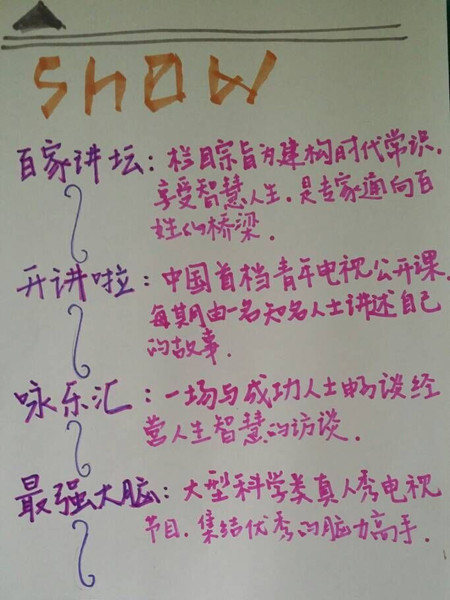 SHOW
百家讲坛：栏目宗旨为建构时代常识，
享受智慧人生。是专家通向百
姓的桥梁．
开讲啦：中国首档青年电视公开课．
每期由一名知名人士讲述自己
的故事．
咏乐汇：一场与成功人士畅谈经
营人生智慧的访谈．
最强大脑：大型科学类真人秀电视
节目．集结优秀的脑力高手．